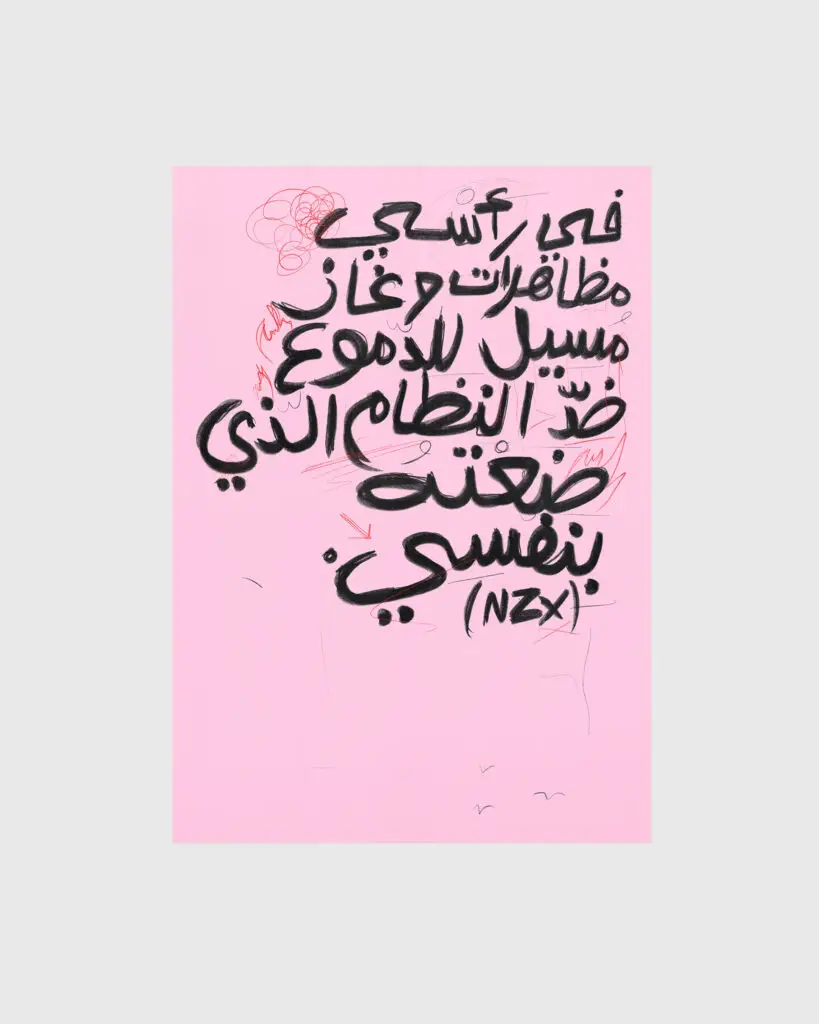 في رأسي
مظاهرات وغاز
مسيل للدموع
ضدّ النظام الذي
ضعته
بنفسي.
(NZX)